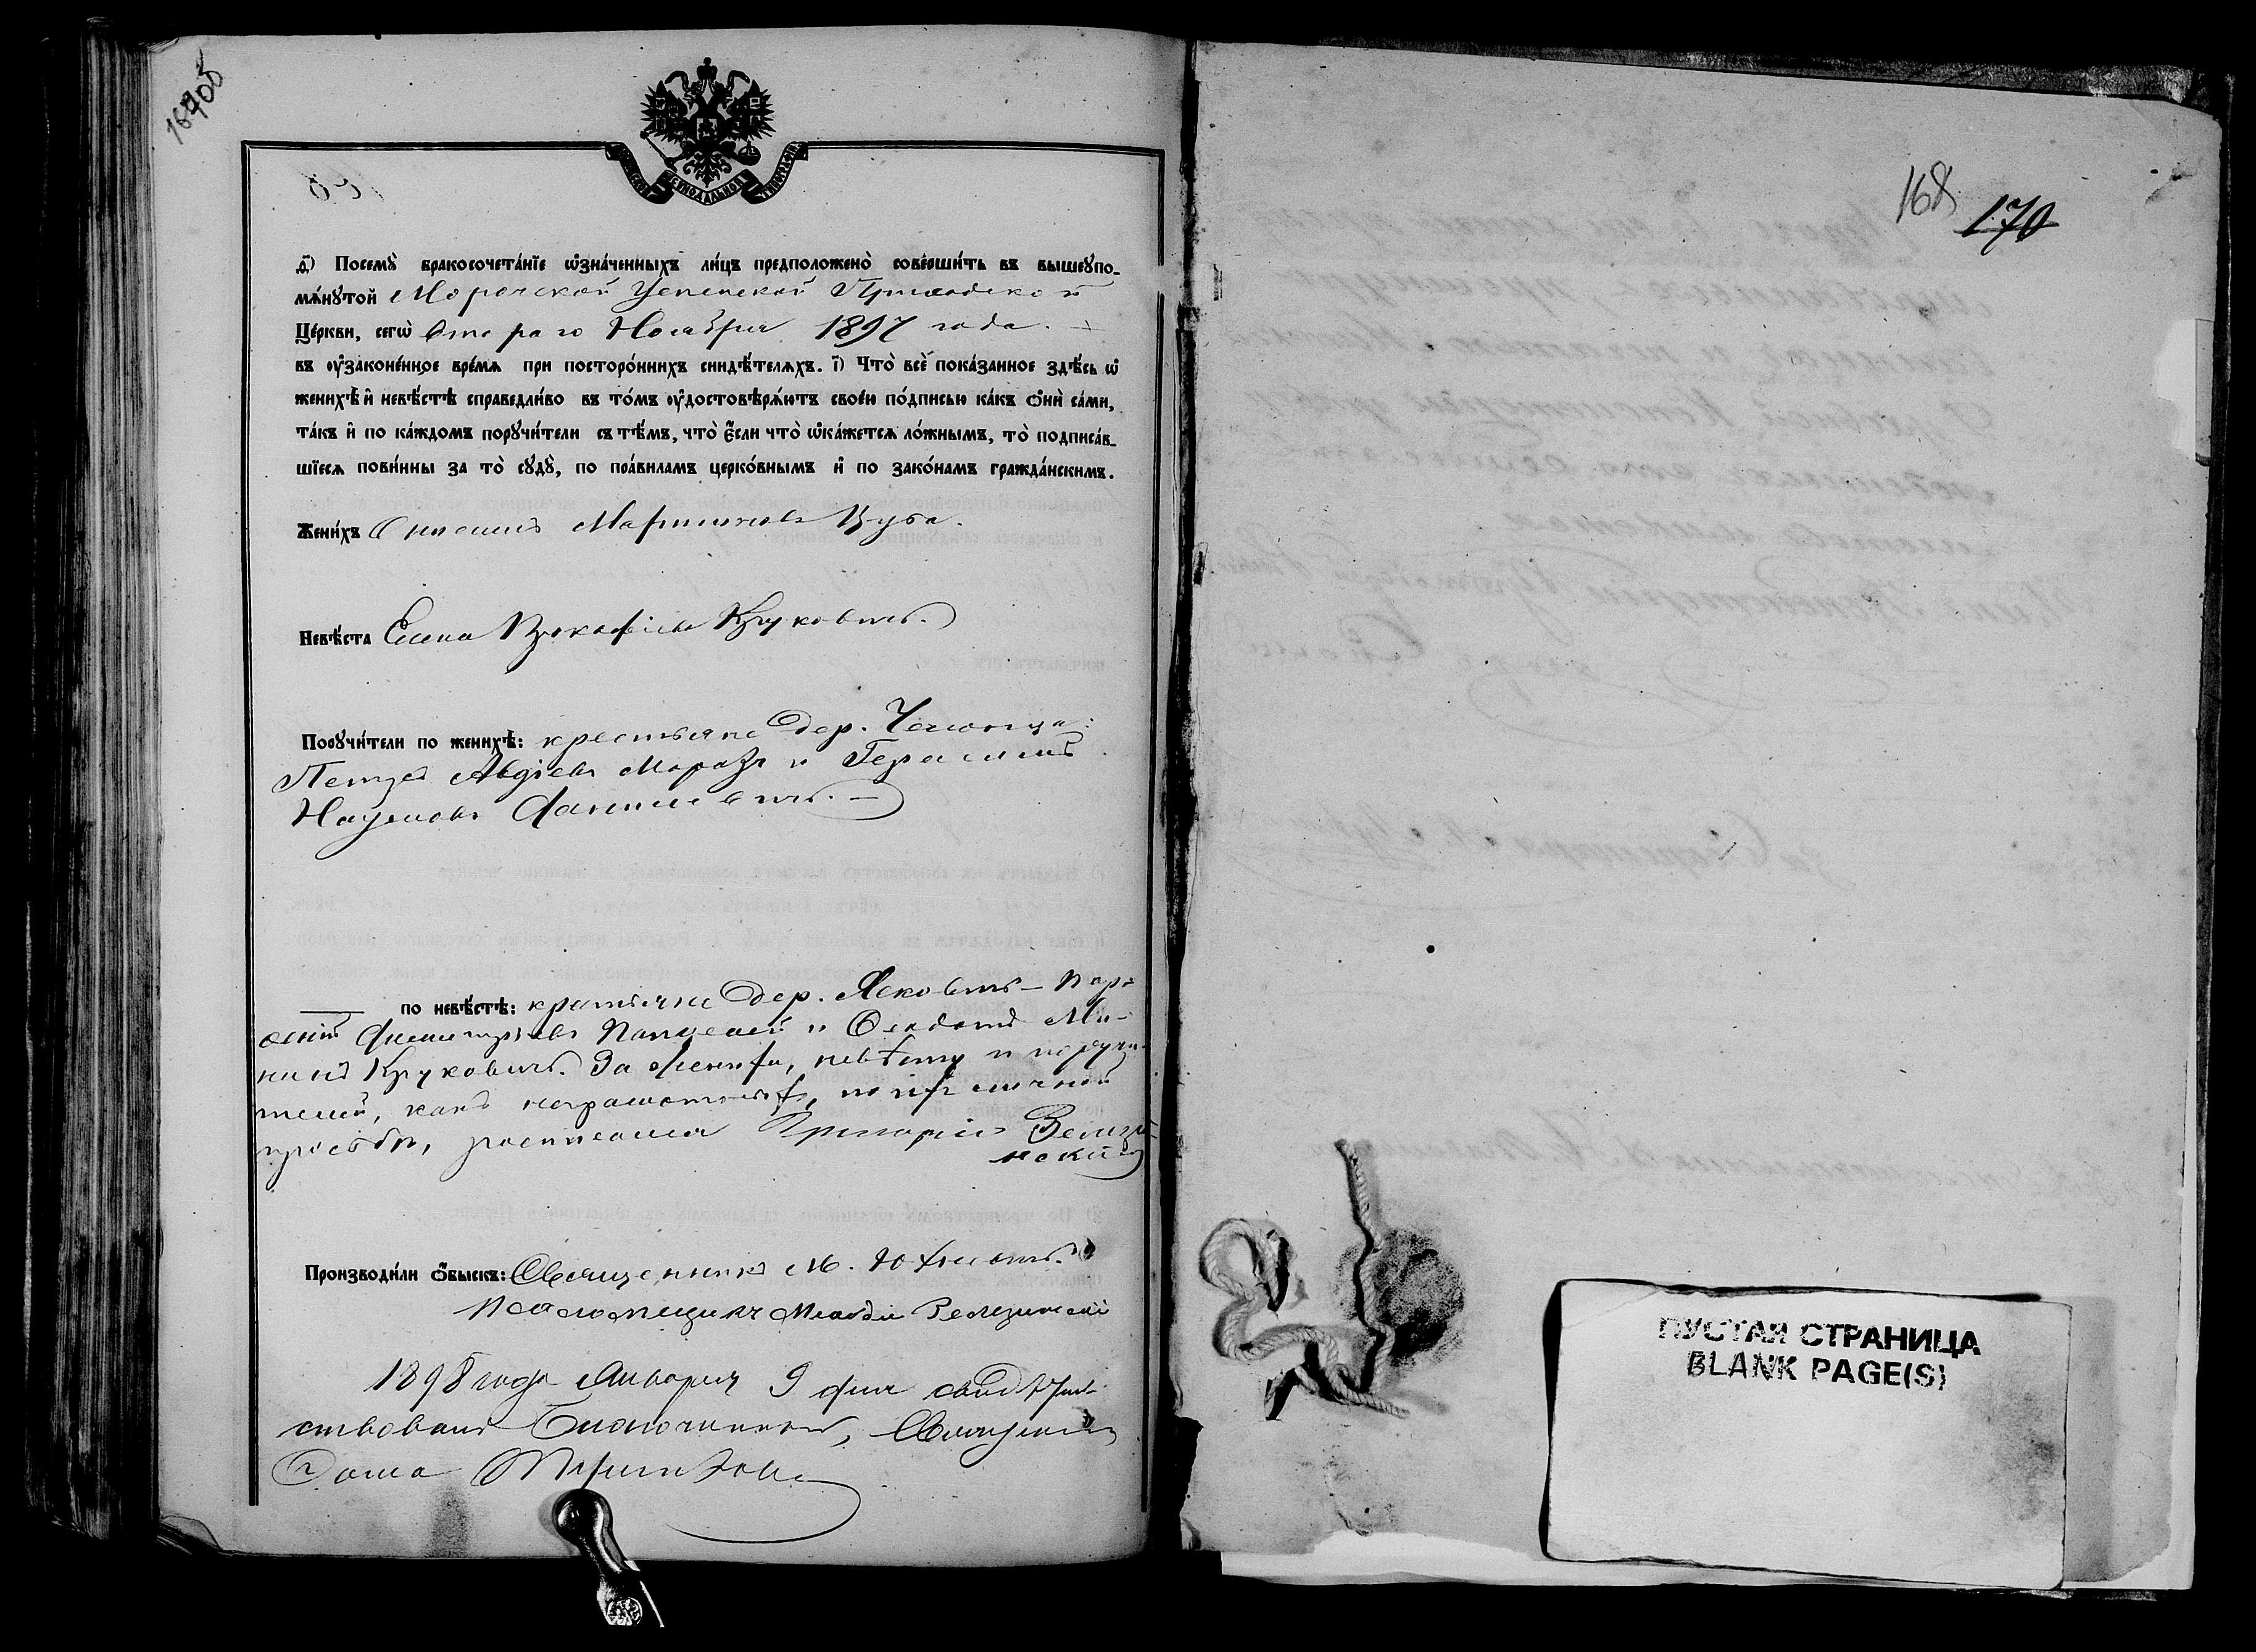 168
170
СѴНОДАЛЬНОЙ
д҃і) Посемꙋ̀ бракосочета́нїе ѡ҆зна́ченныхъ ли́цъ предположено̀ соверши́ть въ вышеꙋпо-
мѧ́нꙋтой Морочской Успенской Приходской
Це́ркви, сегѡ̀ втораго Ноября 1897 года.
въ ᲂу҆законе́нное вре́мѧ при посторо́ннихъ свидѣ́телѧхъ. і҃) Что̀ всѐ пока́занное здѣ́сь ѡ҆
женихѣ̀ и҆ невѣ́стѣ справедли́во въ то́мъ ᲂу҆достовѣрѧ́ютъ свое́ю по́дписью ка́къ ѻ҆нѝ са́ми,
та́къ и҆ по ка́ждомъ порꙋчи́тели съ тѣ́мъ, что̀ є҆́сли что̀ ѡ҆ка́жетсѧ ло́жнымъ, то̀ подписа́в-
шїесѧ пови́нны за то̀ сꙋдꙋ̀, по пра́виламъ церко́внымъ и҆ по зако́намъ гражда́нскимъ.
Жени́хъ Онисимъ Мартиновъ Цуба.
Невѣ́ста Елена Прокофіева Круковичъ.
Порꙋчи́тели по женихѣ̀: крестьяне дер.
Петръ Авдіевъ Морозъ и Герасимъ
Наумовъ Данилевичъ.
по невѣ́стѣ: крестьяне дер. Ясковичъ —
Димитріевъ и Феодотъ Ми-
нинъ Круковичъ. За жениха, невѣсту и поручи-
телей, какъ неграмотныхъ, по ихъ личной
просьбѣ, росписался Григорій
Производи́ли ѻ҆́быскъ: Священникъ М.
Псаломщикъ
1898 года Января 9 дня свидѣтель-
ствовалъ Благочинный, Священникъ
Ѳома
ПУСТАЯ СТРАНИЦА
BLANK PAGE(S)